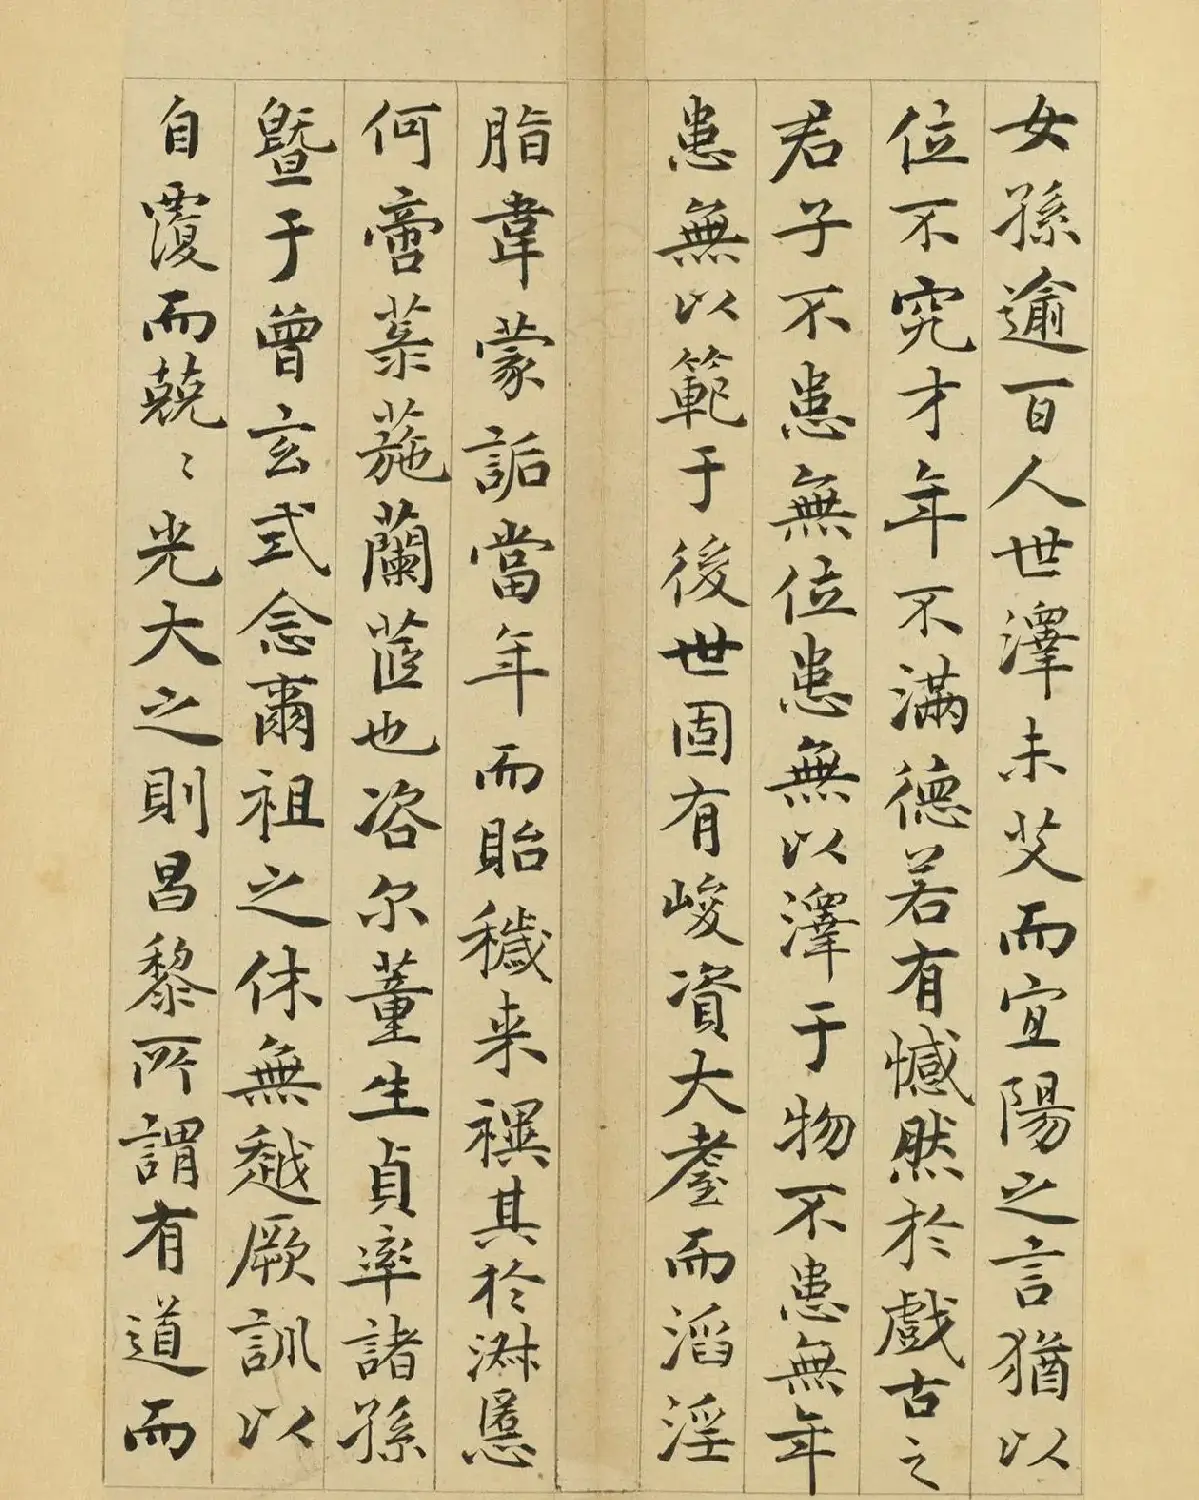 女孫逾百人世澤未艾而宜陽之言猶以
位不究才年不滿德若有憾然於戲古之
君子不患無位患無以澤于物不患無年
患無以範于後世固有峻資大耋而滔淫
脂韋蒙詬當年而貽穢来禩其於淋慝
何啻菉葹蘭茝也咨尔董生貞率諸孫
暨于曾玄式念爾祖之休無越厥訓以
自覆而兢〻光大之則昌黎所謂有道而